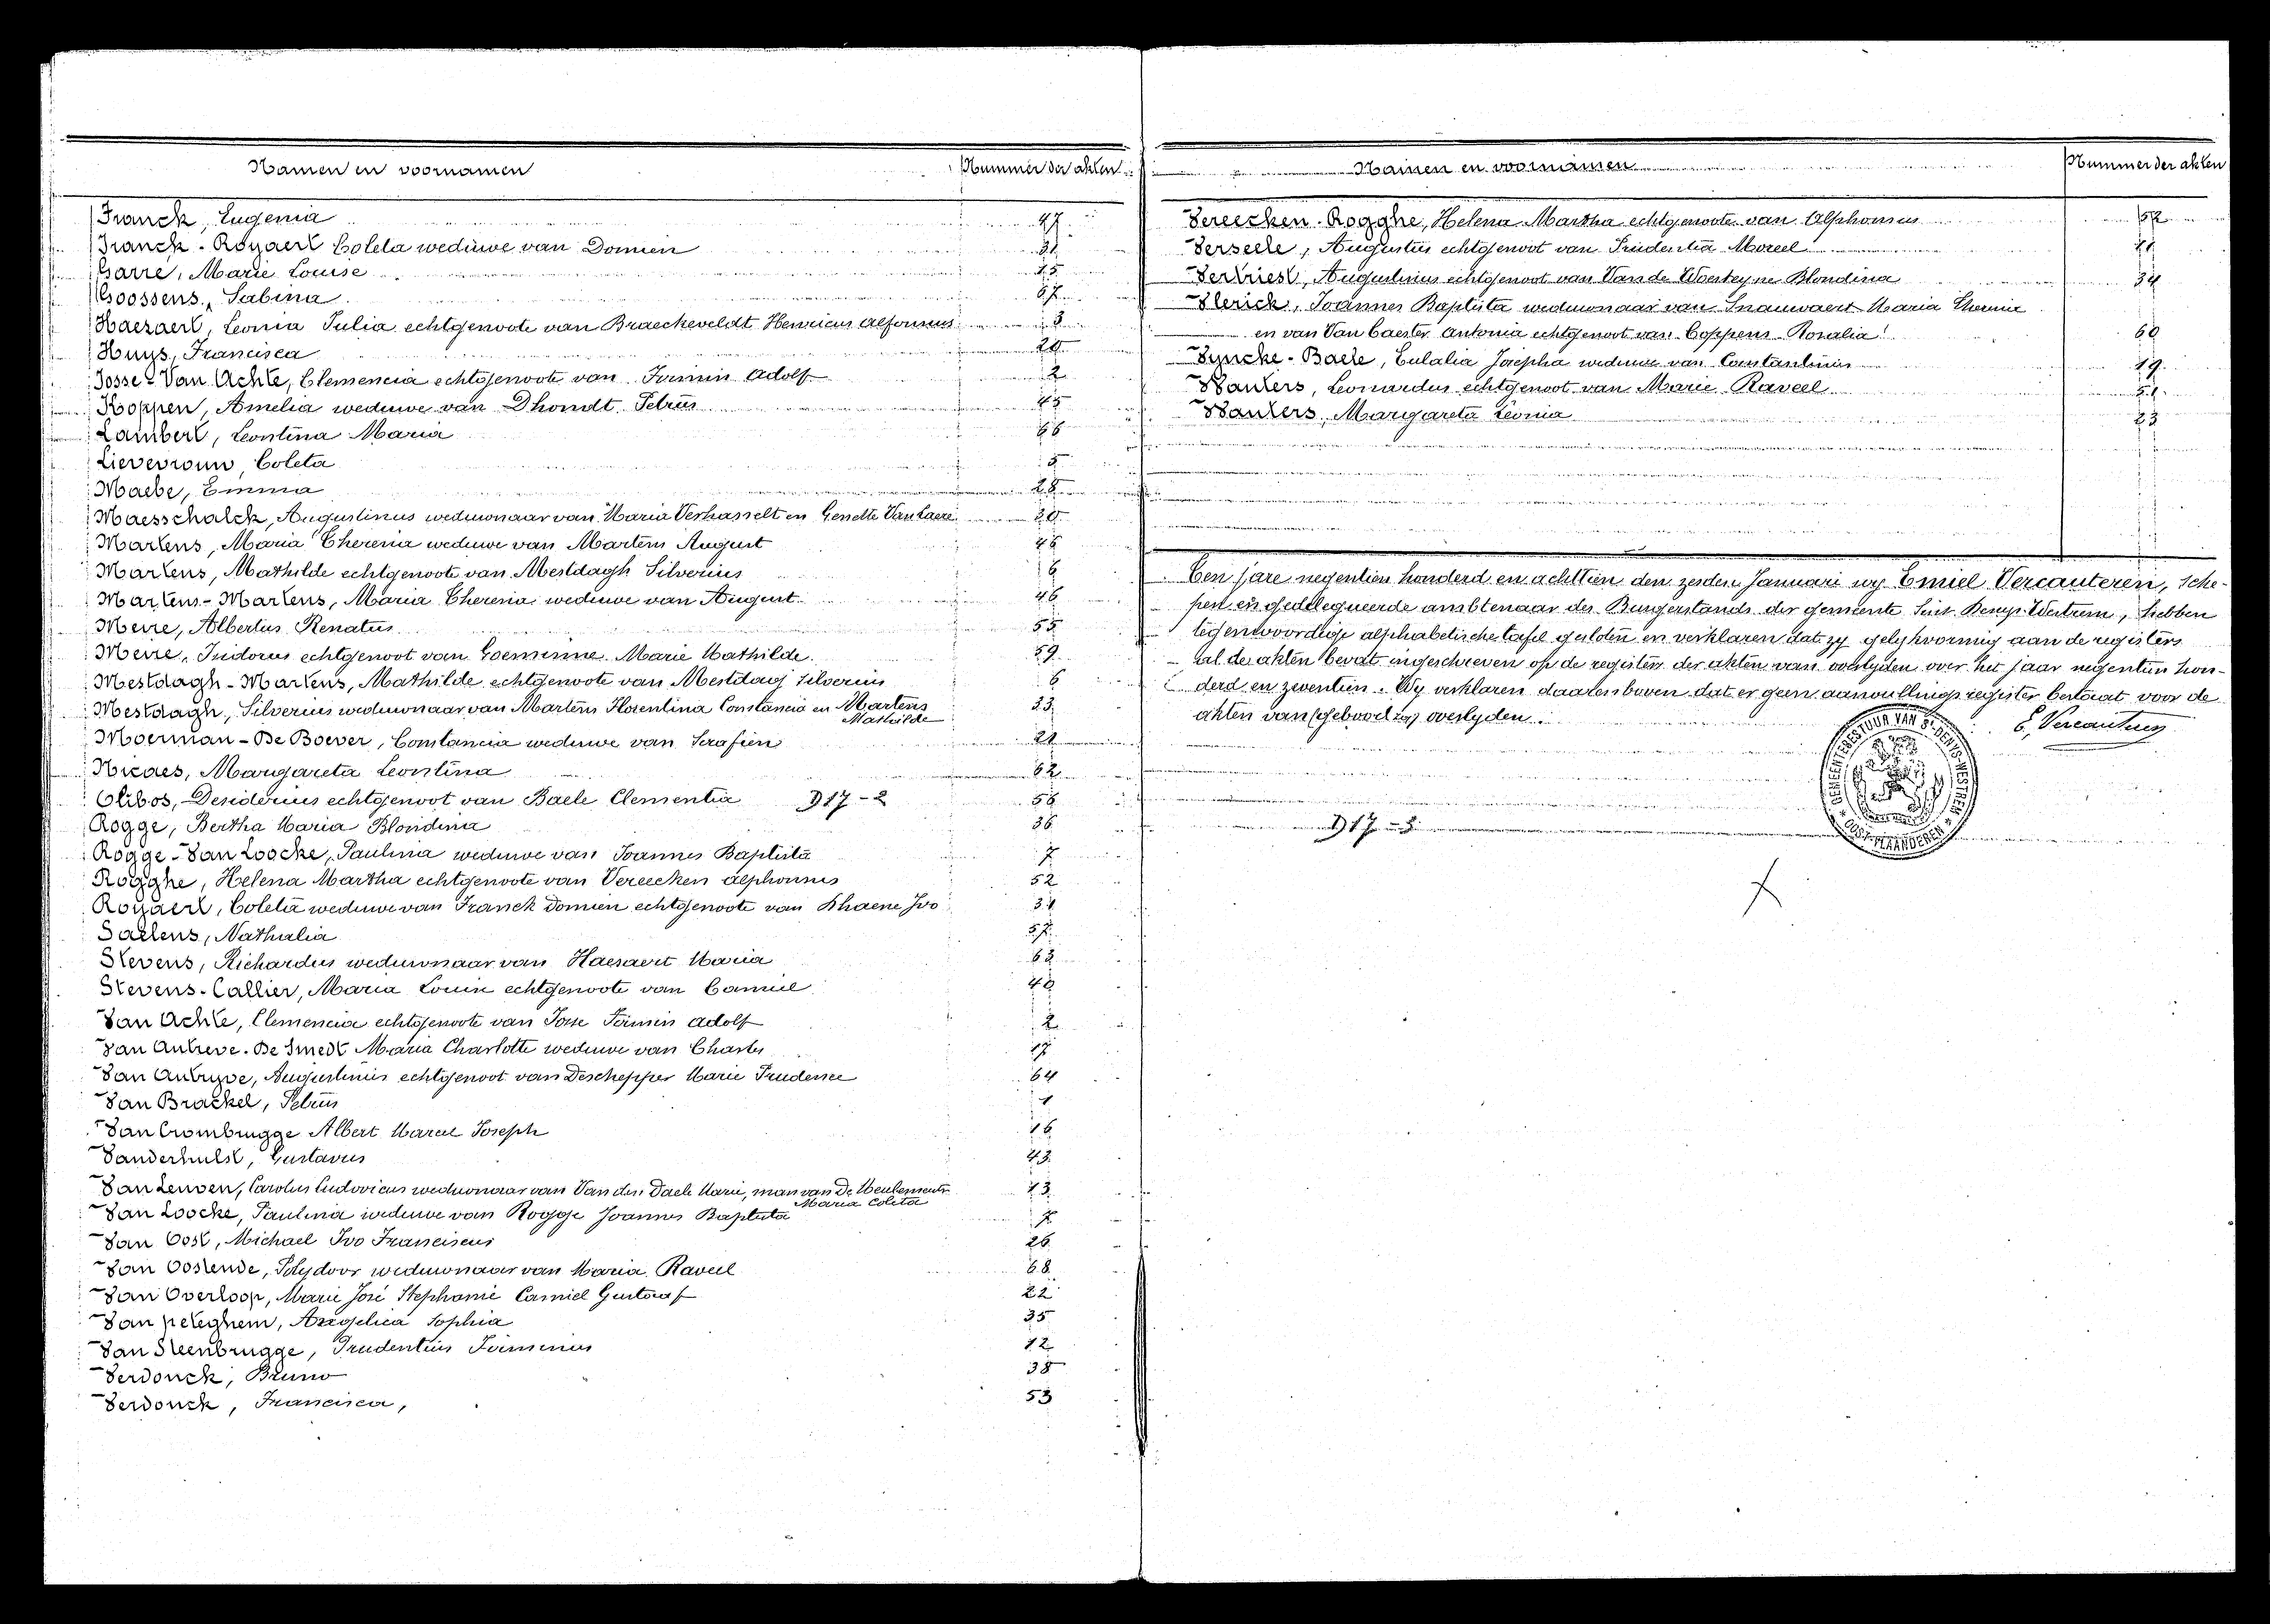 Namen en voornamen Nummer der akten
Franck, Eugenia 47
Franck-Royaert Coleta weduwe van Domien 31
Garre, Marie Louise 25
Goossens, Sabina 67
Haezaert, Leonia Julia echtgenoote van Braeckeveldt Henricus Alfonsus 3
Huys, Francisca 20
Josse-Van Achte, Clemencia echtgenoote van Firmin Adolf 2
Koppen, Amelia weduwe van Dhondt Petrus 45
Lambert, Leontina Maria 66
Lievevrouw, Coleta 5
Maebe, Emma 28
Maesschalck, Augustinus weduwnaar van Maria Verhasselt en Genette Van Laere 30
Martens, Maria Theresia weduwe van Martens August 46
Martens, Mathilde echtgenoote van Mestdagh Silverius 6
Martens-Martens, Maria Theresia weduwe van August 46
Meire, Albertus Renatus 55
Meire, Isidorus echtgenoot van Goeminne Marie Mathilde 59
Mestdagh-Martens, Mathilde echtgenoote van Mestdag Silverius 6
Mestdagh, Silverius weduwnaar van Martens Florentina Constancia en Martens Mathilde 33
Moerman-De Boever, Constancia weduwe van Serafien 21
Nicaes, Margareta Leontina 62
Olibos, Desiderius echtgenoot van Baele Clementia D17-2 56
Rogge, Bertha Maria Blondina 36
Rogge-Van Loocke, Paulina weduwe van Joannes Baptista 7
Rogghe, Helena Martha echtgenoote van Vereecken Alphonsus 52
Royaert, Coleta weduwe van Franck Domien echtgenoote van Dhaene Ivo 31
Saelens, Nathalia 57
Stevens, Richardus weduwnaar van Haesaert Maria 63
Stevens-Callier, Maria Louise echtgenoote van Camiel 40
Van Achte, Clemencia echtgenoote van Josse Firmin Adolf 2
Van Autreve-De Smedt Maria Charlotte weduwe van Charles 17
Van Autryve, Augustinus echtgenoot van Deschepper Marie Prudence 64
Van Brackel, Petrus 1
Van Crombrugge Albert Marcel Joseph 16
Vanderhulst, Gustavus 43
Van Leuven, Carolus Ludovicus weduwnaar van Van den Daele Marie, man van De Meulemeester Maria Coleta 13
Van Loocke, Paulina weduwe van Rogge Joannes Baptista 7
Van Oost, Michael Ivo Franciscus 26
Van Oostende, Polydoor weduwnaar van Maria Raveel 68
Van Overloop, Marie José Stephanie Camiel Gustaaf 22
Van Peteghem, Angelica Sophia 35
Van Steenbrugge, Prudentius Firminus 12
Verdonck, Bruno 38
Verdonck, Francisca, 53
Namen en voornamen Nummer der akten
Vereecken-Rogghe, Helena Martha echtgenoote van Alphonsus 52
Verseele, Augustus echtgenoot van Prudentia Moreel
Vertriest, Augustinus echtgenoot van Van de Woesteyne Blondina 34
Vlerick, Joannes Baptista weduwnaar van Snauwaert Maria Theresia
en van Van Caester Antonia echtgenoot van Coppens Rosalia 60
Vyncke-Baele, Eulalia Josepha weduwe van Constantinus 19
Wauters, Leonardus echtgenoot van Marie Raveel 51
Wauters, Margareta Leonia 23
Ten jare negentien honderd en achttien den zesden Januari wy Emiel Vercauteren, sche-
pen en gedelegueerde ambtenaar des Burgerstands der gemeente Sint Denys-Westrem, hebben
tegenwoordige alphabetische tafel gesloten en verklaren dat zy gelykvormig aan de registers
al de akten bevat ingeschreven op de registers der akten van overlyden over het jaar negentien hon-
derd en zeventien. Wy verklaren daarenboven dat er geen aanvullings register bestaat voor de
akten van overlyden.
E, Vercauteren
GEMEENTEBESTUUR VAN St-DENYS-WESTREM
* OOST-VLAANDEREN *
D17-3